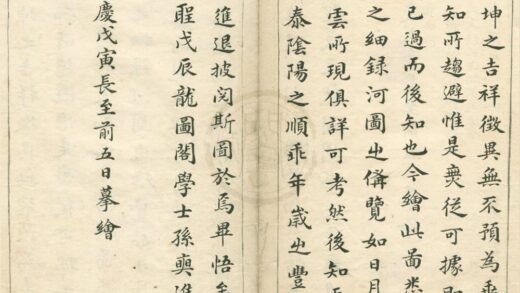 坤之吉祥徵異無不預為垂
知所趨避惟是奭從可據
已過而後知也今繪此啚
之細録河圖㞢備覽如日月
雲所現俱詳可考然後知
泰陰陽之順乖年歲㞢豐
進退披閱斯圖於焉畢悟
聖戊辰龍圖閣學士孫奭進
慶戊寅長至前五日摹繪